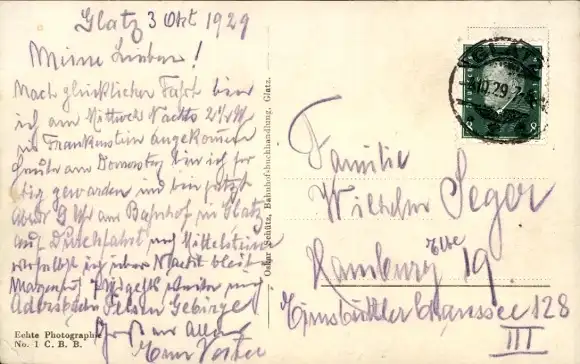 Glatz 3 Okt 1929
Meine Lieben!
Nach glücklicher Fahrt bin
ich am Mittwoch Nachts 2 Uhr
in Frankenstein angekommen
heute am Donnerstag bin ich fer
tig geworden und bin jetzt
Abend 9 Uhr am Bahnhof in Glatz
auf Durchfahrt nach Mittelsteine
woselbst ich über Nacht bleibe
Morgen 7 Uhr geht weiter nach
Adersbach Felsen Gebirge
Gruß an Alle
Euer Vater
Echte Photographie
No. 1 C. B. B.
Oskar Schütz, Bahnhofsbuchhandlung, Glatz.
GLATZ
10.29
8
Familie
Wilhelm Seger
Hamburg 19
Eimsbüttler Chaussee 128
III